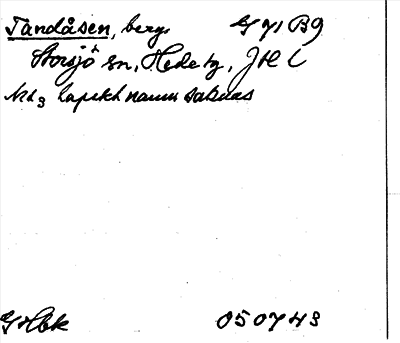 Tandåsen, berg G 71 B9
Storsjö sn, Hede tg, JHL
lapskt namn saknas
050743